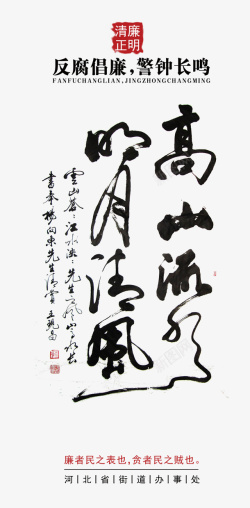 清廉
正明
反腐倡廉,警钟长鸣
FANFUCHANGLIAN,JINGZHONGCHANGMING
高山流水
明月清風
雲山蒼﹕江水泱﹕先生之风山高水长
書奉楊向東先生清賞
廉者民之表也,贪者民之贼也。
河|北|省|街|道|办|事|处